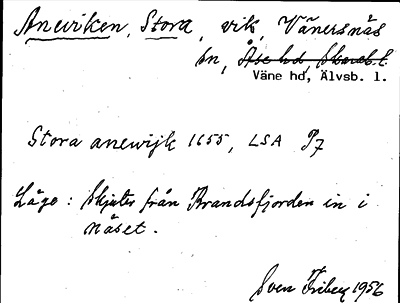 Aneviken, Stora, vik, Vänersnäs
sn, Åse hd, Skarab. l.
Väne hd, Älvsb. l.
Stora anewijk 1655, LSA P7
Läge: skjuter från Brandsfjorden in i
näset.
Sven Friberg 1956